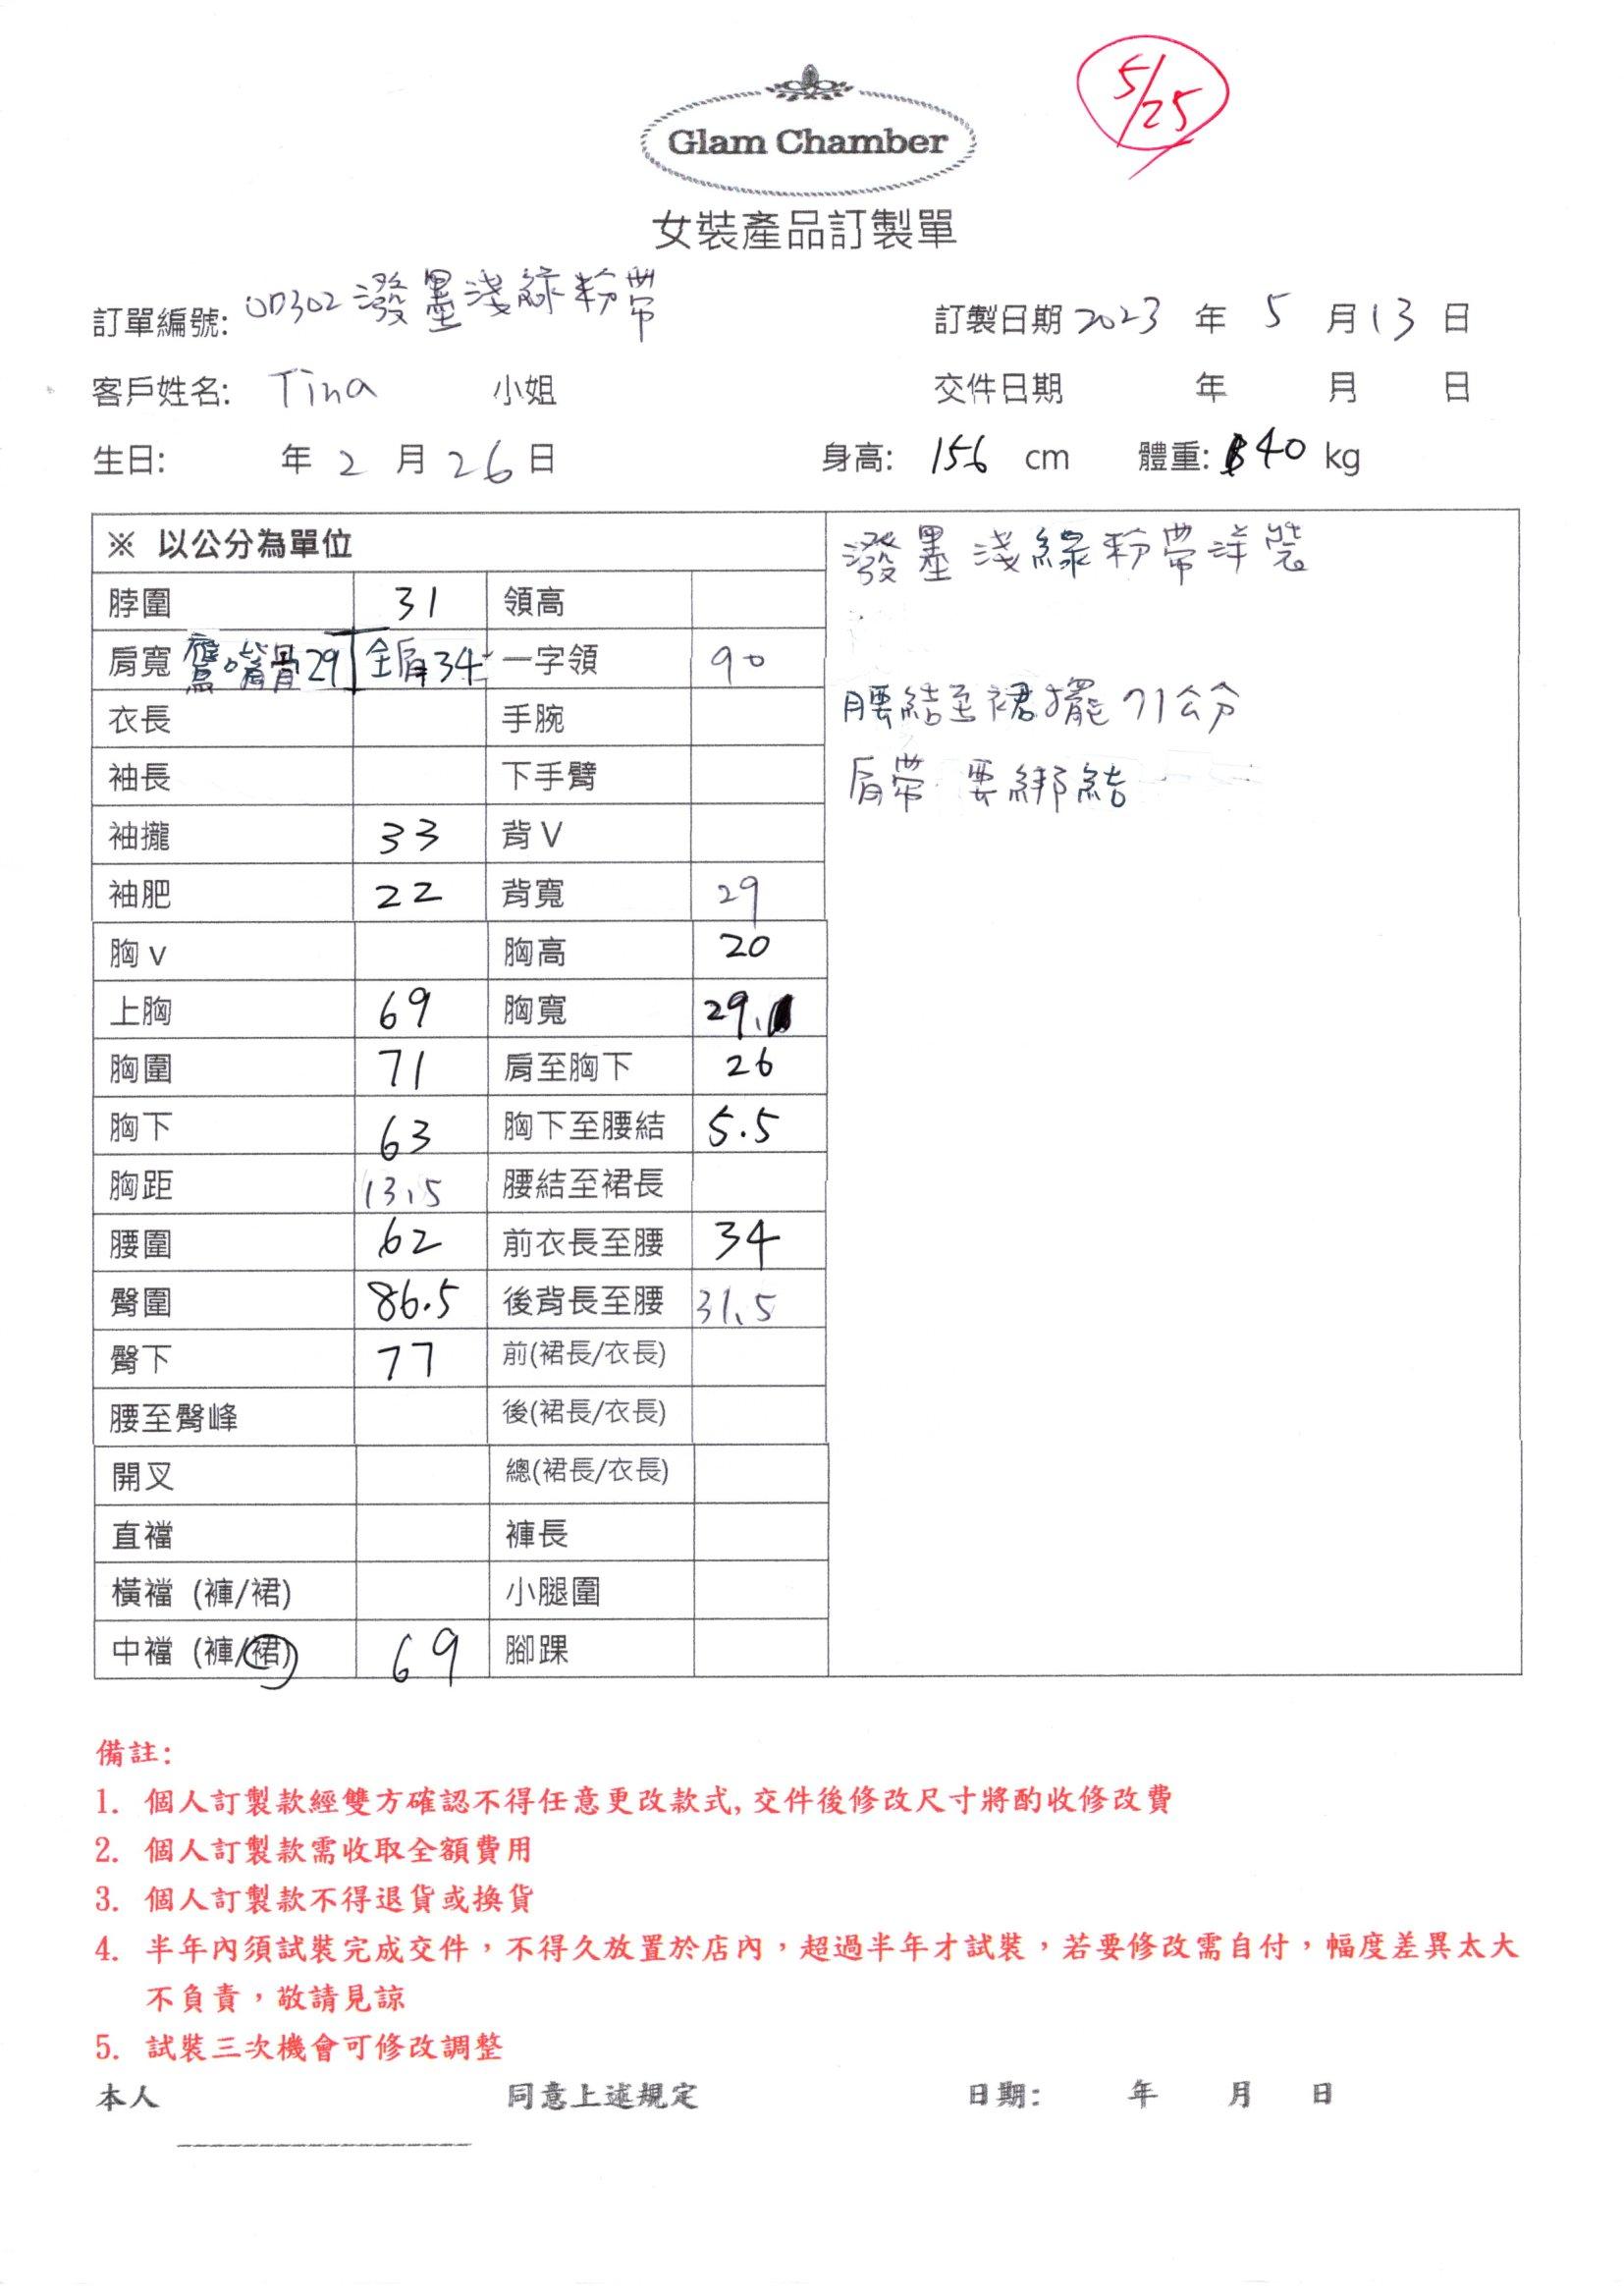 5/25
Glam Chamber
女裝產品訂製單
訂單編號: OD302潑墨淺綠粉帶
訂製日期 2023 年 5 月 13 日
客戶姓名: Tina 小姐
交件日期 年 月 日
生日: 年 2 月 26 日 身高: 156 cm 體重: 40 kg
※ 以公分為單位
潑墨淺綠粉帶洋裝
脖圍 31 領高
肩寬 鷹嘴骨29 全肩34 一字領 90
衣長 手腕
腰結至裙擺71公分
袖長 下手臂
肩帶要綁結
袖攏 33 背V
袖肥 22 背寬 29
胸v 胸高 20
上胸 69 胸寬 29.
胸圍 71 肩至胸下 26
胸下 63 胸下至腰結 5.5
胸距 13.5 腰結至裙長
腰圍 62 前衣長至腰 34
臀圍 86.5 後背長至腰 31.5
臀下 77 前(裙長/衣長)
腰至臀峰 後(裙長/衣長)
開叉 總(裙長/衣長)
直襠 褲長
橫襠 (褲/裙) 小腿圍
中襠 (褲/裙) 69 腳踝
備註:
1. 個人訂製款經雙方確認不得任意更改款式,交件後修改尺寸將酌收修改費
2. 個人訂製款需收取全額費用
3. 個人訂製款不得退貨或換貨
4. 半年內須試裝完成交件，不得久放置於店內，超過半年才試裝，若要修改需自付，幅度差異太大
不負責，敬請見諒
5. 試裝三次機會可修改調整
本人 同意上述規定 日期: 年 月 日